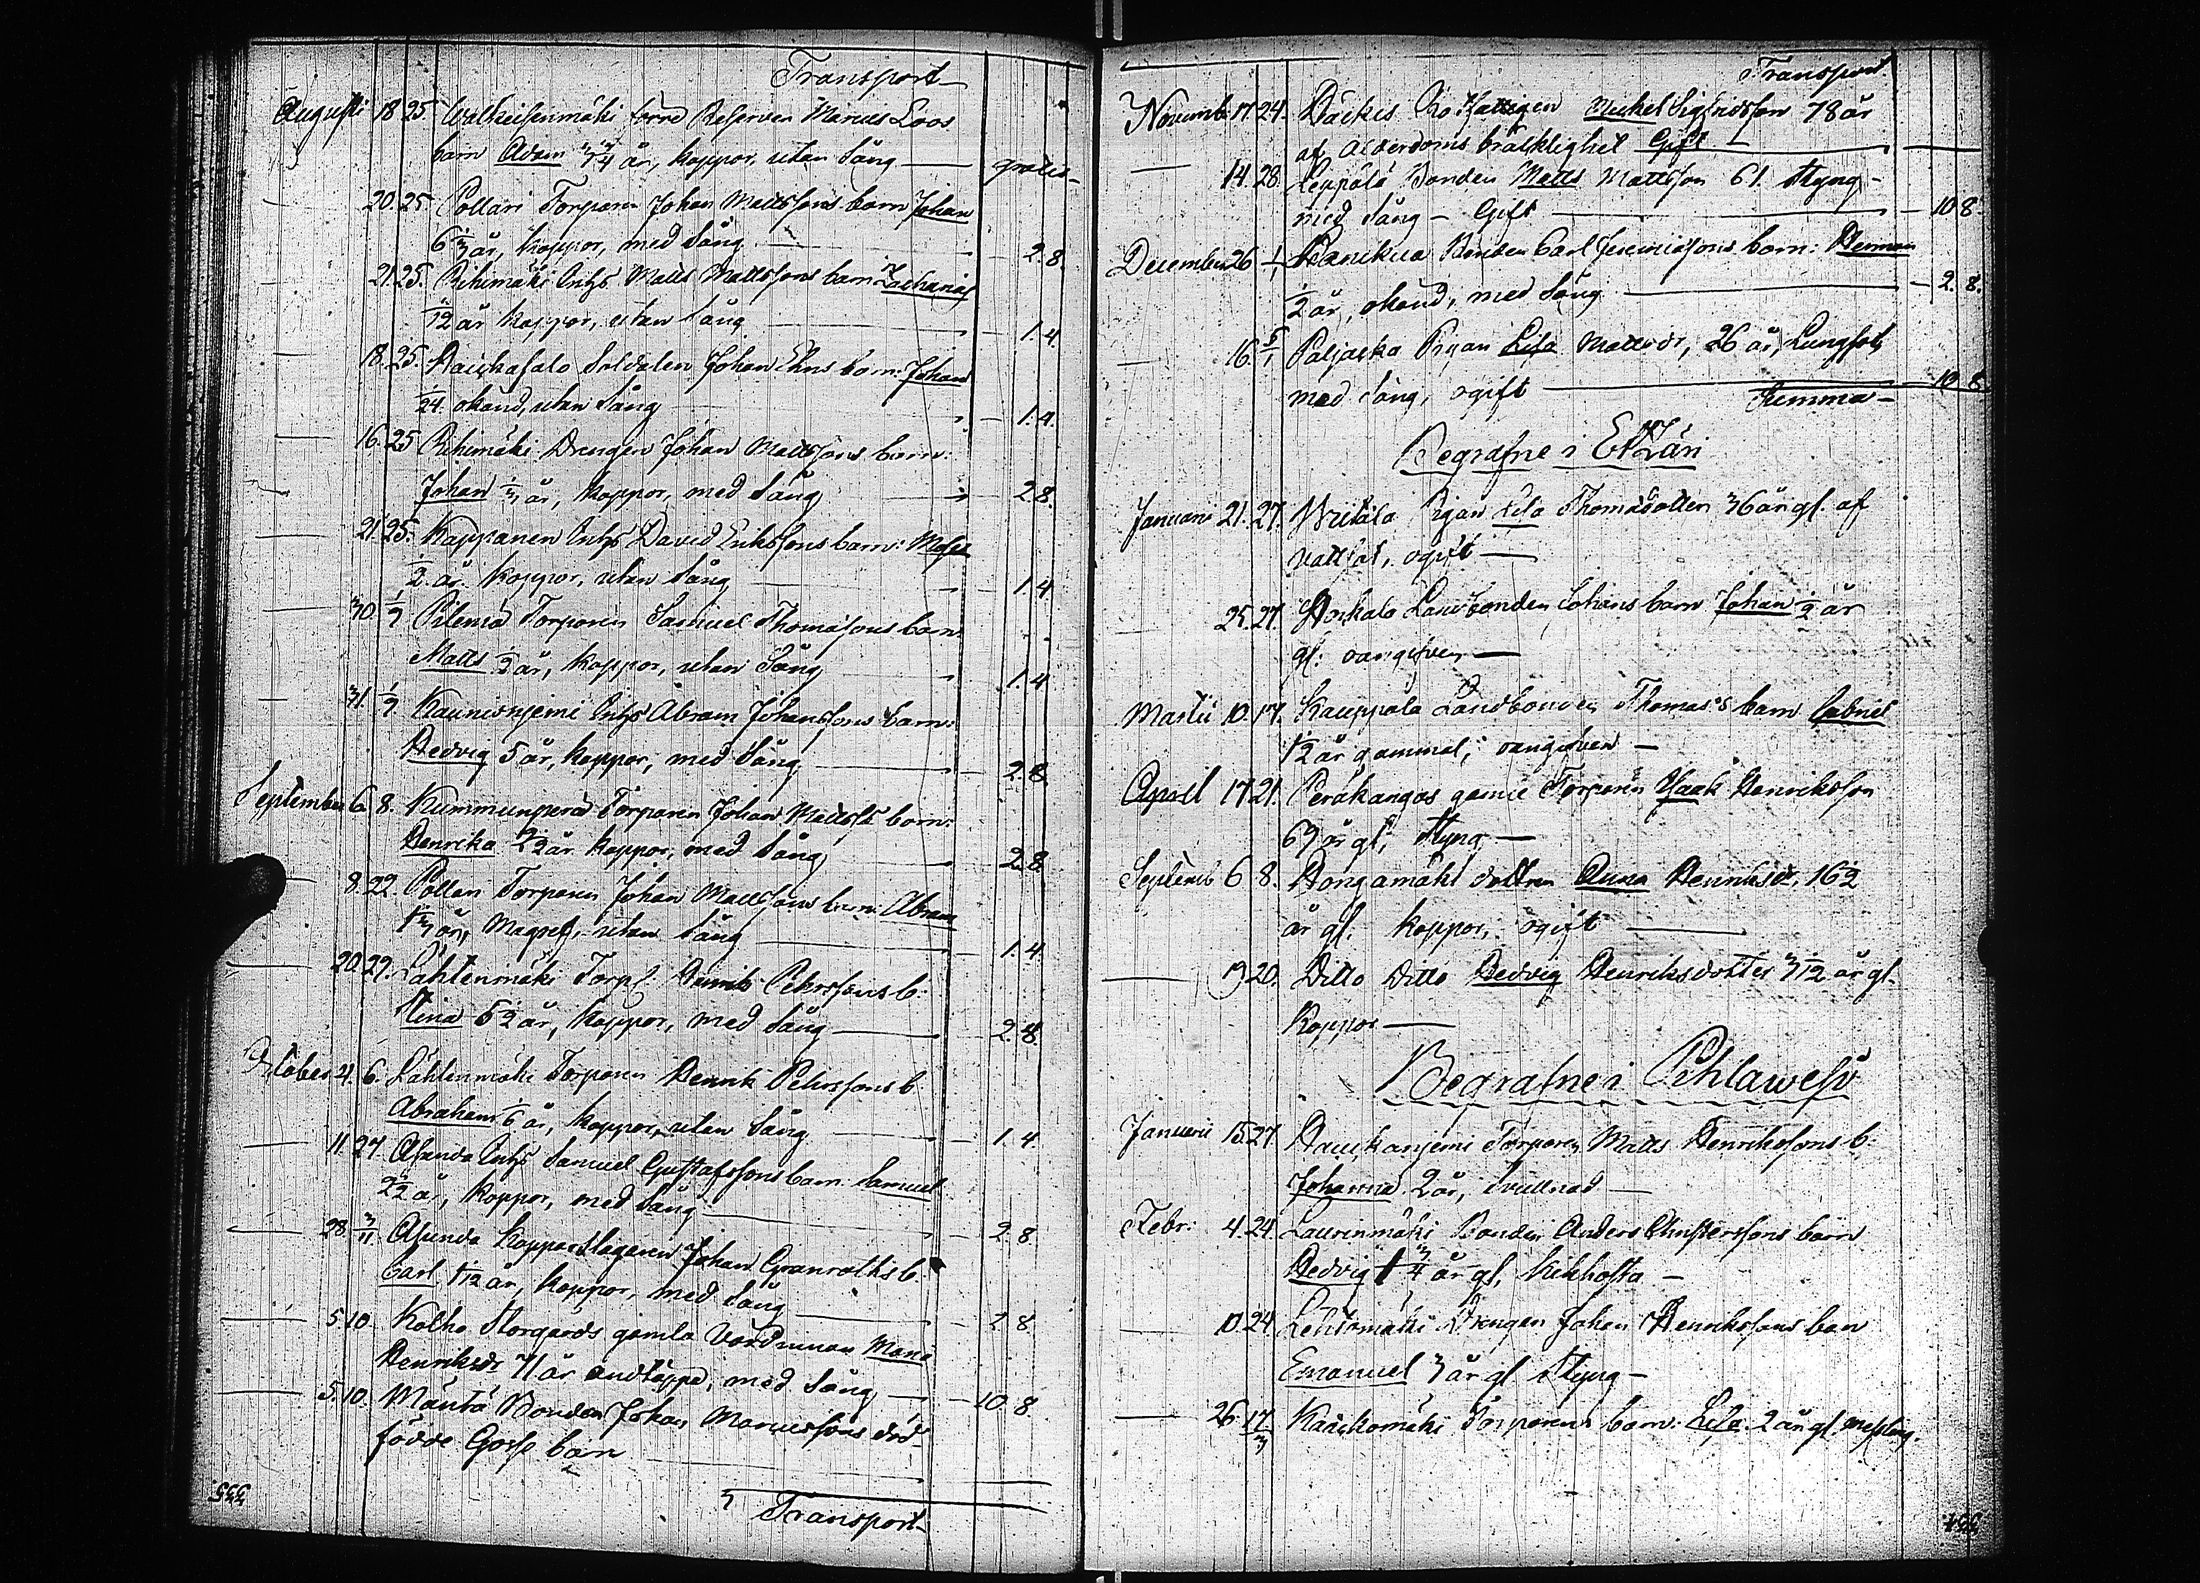 Transport
Augusti 18 25. Walkeisenmäki förre Reserven Marius Loos
barn Adam 3/4 år, koppor, utan Sång — gratis
20. 25 Pollari Torparen Johan Mattssons barn Johan
6 1/3 år, Koppor, med Sång — 2. 8.
21. 25. Rihimäki Inhs Matts Mattssons barn Zacharias
1/12 år koppor, utan Sång — 1. 4.
18. 25. Kaijkasalo Soldaten Johan Ehns barn: Johan
1/24. okänd, utan Sång — 1. 4.
16. 25 Rihimäki Drengen Johan Mattssons barn:
Johan 1/3 år, Koppor, med Sång — 2. 8
21. 25. Kappanen Inhs David Erikssons barn: Moses
1/2 år. Koppor, utan Sång — 1. 4
30. 1/9 Pilema Torparen Samuel Thomassons barn
Matts 1/2 år, Koppor, utan Sång — 1. 4
31. 1/9 Kauniskjemi Inhs Abram Johanssons barn:
Hedvig 5 år, Koppor, med Sång — 2. 8.
September 6. 8. Kummunperä Torparen Johan Mattss: barn:
Henrika 2 1/2 år Koppor, med Sång — 2. 8
8. 22. Pollari Torparen Johan Mattssons barn: Abram
1 1/3 år, Magref, utan Sång — 1. 4
20. 22. Lahtenmäki Torp: Henrik Pehrssons b:
Stina 5 1/2 år, Koppor, med Sång — 2. 8.
October 4. 6. Lähtenmäki Torparen Henrik Pehrssons b:
Abraham 1/6 år, Koppor, utan Sång — 1. 4.
11. 27. Asunda Inhs Samuel Gustafssons barn: Samuel
2 1/2 år, Koppor, med Sång — 2. 8
28. 3/11 Asunda Kopparslagaren Johan Granroths b.
Carl 1/12 år, Koppor, med Sång — 2 8
5. 10. Kolho Storgårds gamla Värdinnan Maria
Henriksdr 71 år andtäppa, med Sång — 10 8
5. 10. Mänttä Bonden Johan Mariussons död-
födde Gosse barn
Transport
335
Transport
Novemb 17. 24. Häckis Rothattigen Michel Sigfridsson 78 år
af Ålderdoms bräcklighet Gift
14. 28. Leppälä Bonden Matts Mattsson 61. Styng
med Sång — Gift — 10 8.
December 26 1/1 Bonden Carl Jeremiassons barn: Herman
1/2 år, okänd, med Sång — 2. 8.
16. 5/1 Paljacka Pigan Lisa Mattsdr, 26 år, Lungsot,
med Sång, ogift — 10 8
Summa
Begrafne i Etzäri
Januarii 21. 27. Pigan Lisa Thomasdotter 36 år gl. af
vattsot, ogift —
25. 27. Landbonden Johans barn Johan 1/2 år
gl: oangifven —
Martii 10. 17. Kauppala Landbonden Thomas's barn Gabriel
1/2 år gammal, oangifven —
April 17 21. Peräkangas gamle Torparen Isaak Henriksson
69 år gl, Styng —
Septemb 6 8. Hongamäki dottren Anna Henriksdr, 16 1/2
år gl. Koppor, ogift —
19 20. Ditto Ditto Hedvig Henriksdotter 3 1/12 år gl.
Koppor —
Begrafne i Pihlawesi
Januarii 15. 27. Haukanjemi Torparen Matts Henrikssons b:
Johanna 2 år, svullnad —
Febr: 4. 24. Laurinmäki Bonden Anders Christerssons barn
Hedvig 1 3/4 år gl, Kikhosta —
10. 24. Lehtomäki Drengen Johan Henrikssons barn
Emanuel 3 år gl Styng —
26 17/3 Kaackomäki Torparens barn: Lisa 2 år gl. messling.
334